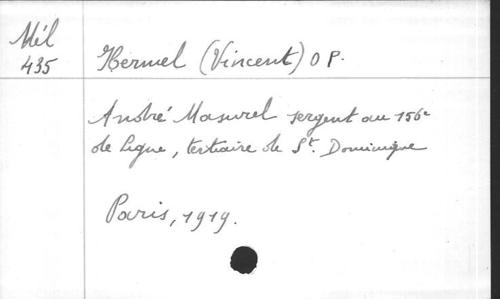 Mél
435
Hermel (Vincent) O P.
André Masurel sergent au 156e
de ligne, tertiaire de St. Dominique
Paris, 1919.